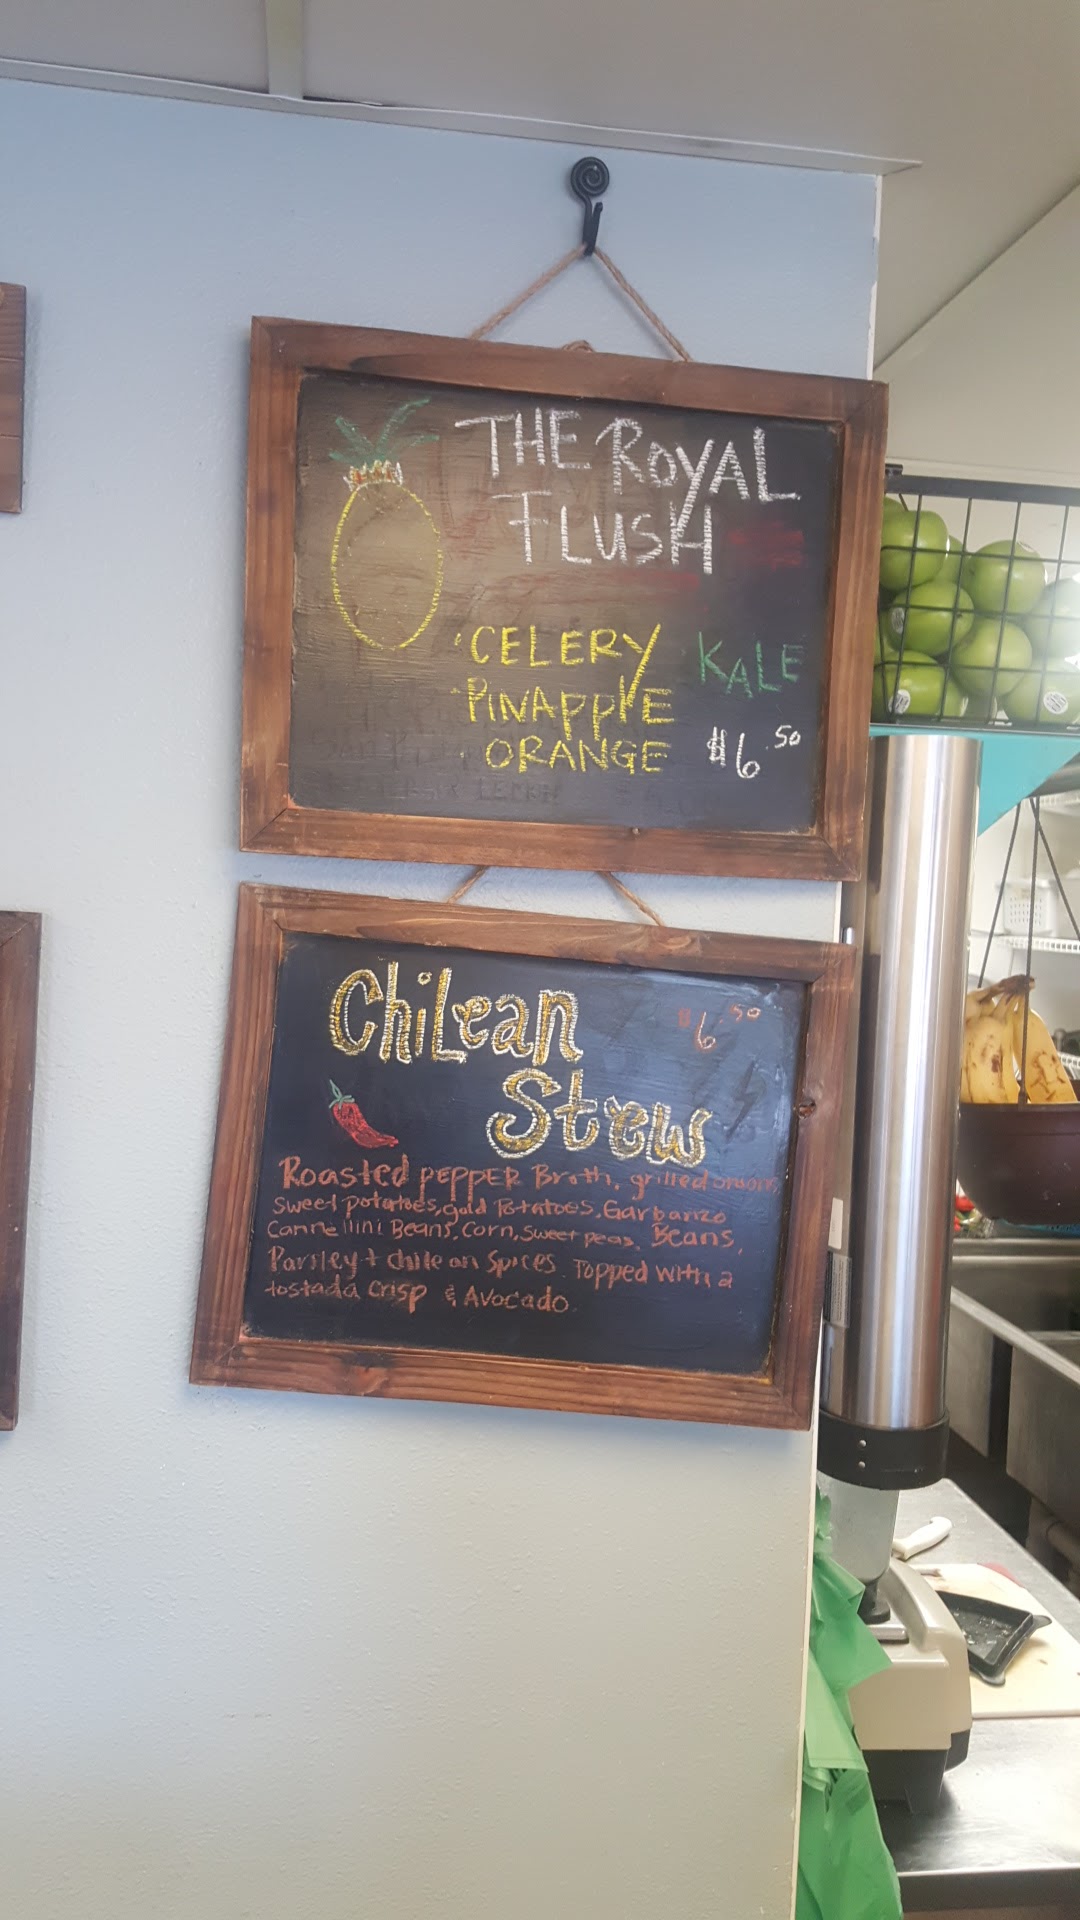 THE ROYAL
FLUSH
· CELERY KALE
· PINAPPLE
· ORANGE $6.50
Chilean $6.50
Stew
Roasted PEPPER Broth, grilled onions,
Sweet potatoes, gold Potatoes, Garbanzo
Cannellini Beans, Corn, Sweet peas, Beans,
Parsley + chilean Spices. Topped with a
tostada crisp & Avocado.